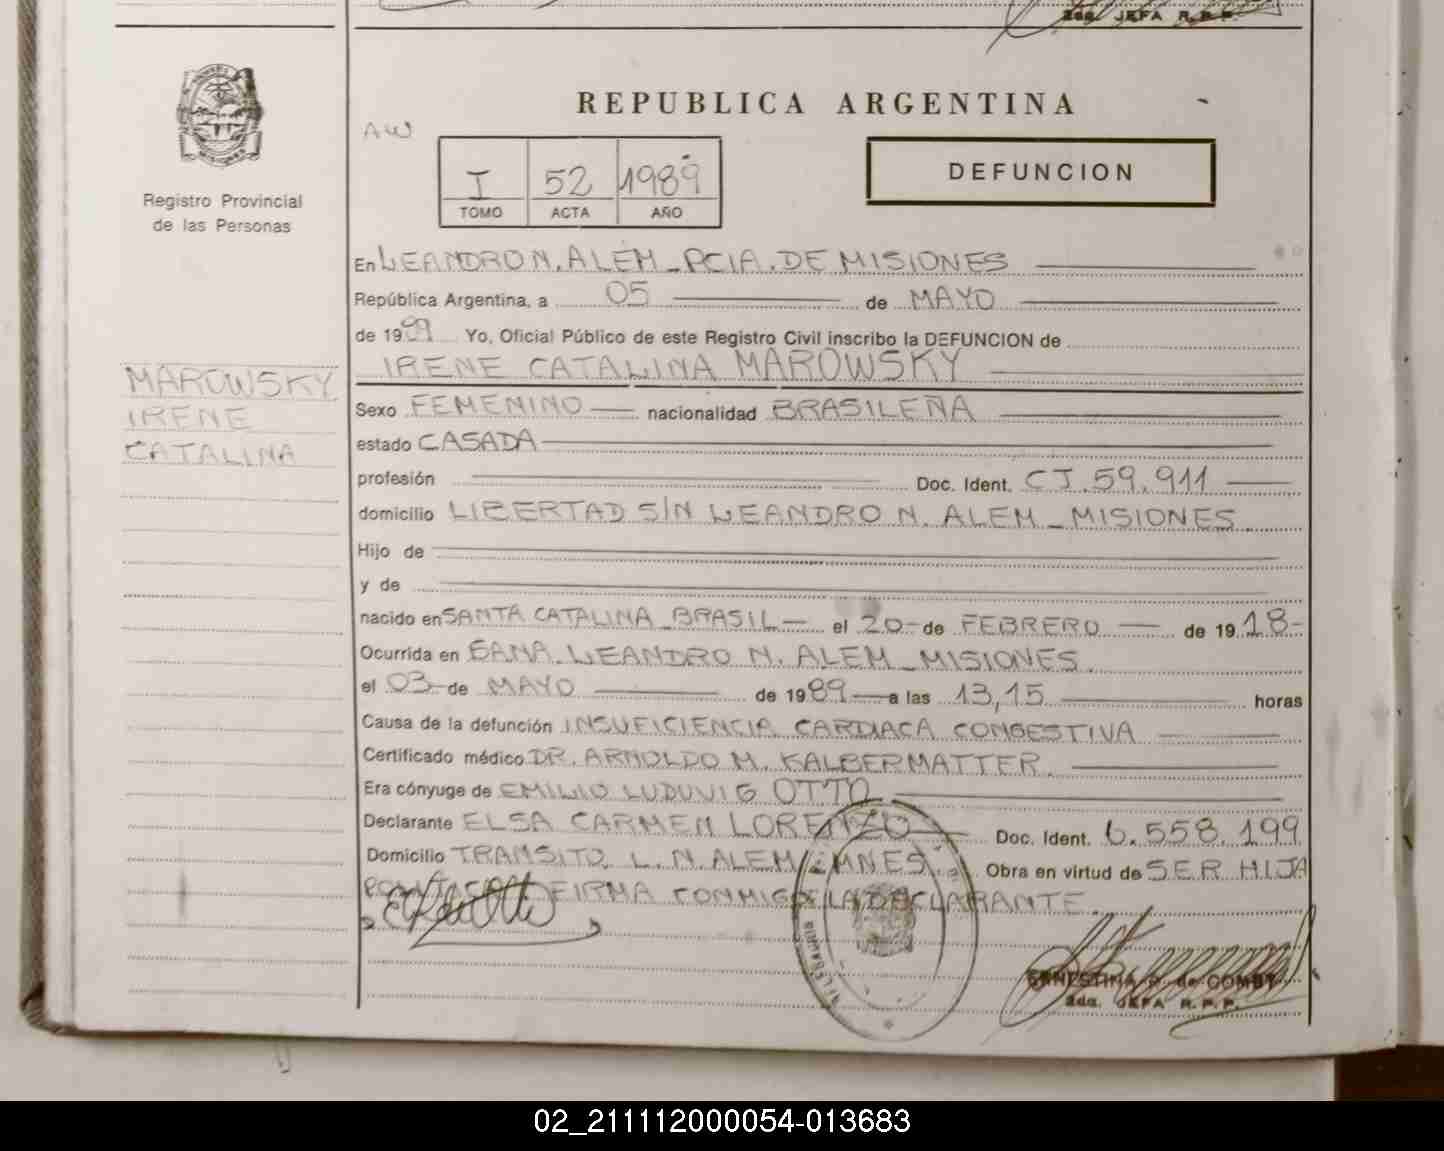 2da. JEFA R.P.P.
REPUBLICA ARGENTINA
AW
I 52 1989
TOMO ACTA AÑO
DEFUNCION
Registro Provincial
de las Personas
En LEANDRO N. ALEM - PCIA. DE MISIONES
República Argentina, a 05 de MAYO
de 1989 Yo, Oficial Público de este Registro Civil inscribo la DEFUNCION de
IRENE CATALINA MAROWSKY
MAROWSKY
IRENE
CATALINA
Sexo FEMENINO nacionalidad BRASILEÑA
estado CASADA
profesión Doc. Ident. CI. 59.911
domicilio LIBERTAD S/N LEANDRO N. ALEM - MISIONES
Hijo de
y de
nacido en SANTA CATALINA - BRASIL el 20 de FEBRERO de 1918
Ocurrida en LEANDRO N. ALEM - MISIONES.
el 03 de MAYO de 1989 a las 13,15 horas
Causa de la defunción INSUFICIENCIA CARDIACA CONGESTIVA
Certificado médico DR. ARNOLDO M. KALBERMATTER.
Era cónyuge de EMILIO LUDUVIG OTTO
Declarante ELSA CARMEN LORENZO Doc. Ident. 6.558.199
Domicilio TRANSITO L. N. ALEM MNES. Obra en virtud de SER HIJA
FIRMA CONMIGO LA DECLARANTE.
ERNESTINA R. de GOMEZ
2da. JEFA R.P.P.
02_211112000054-013683